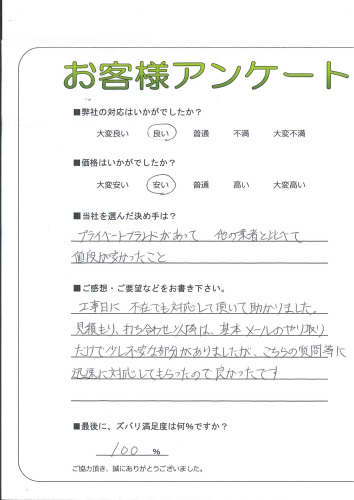 お客様アンケート
■弊社の対応はいかがでしたか？
大変良い 良い 普通 不満 大変不満
■価格はいかがでしたか？
大変安い 安い 普通 高い 大変高い
■当社を選んだ決め手は？
プライベートブランドがあって 他の業者と比べて
値段が安かったこと
■ご感想・ご要望などをお書き下さい。
工事日に 不在でも対応して頂いて助かりました。
見積もり、打ち合わせ以降は、基本メールのやり取り
だけで少し不安な部分がありましたが、こちらの質問等に
迅速に対応してもらったので良かったです
■最後に、ズバリ満足度は何%ですか？
100 %
ご協力頂き、誠にありがとうございました。